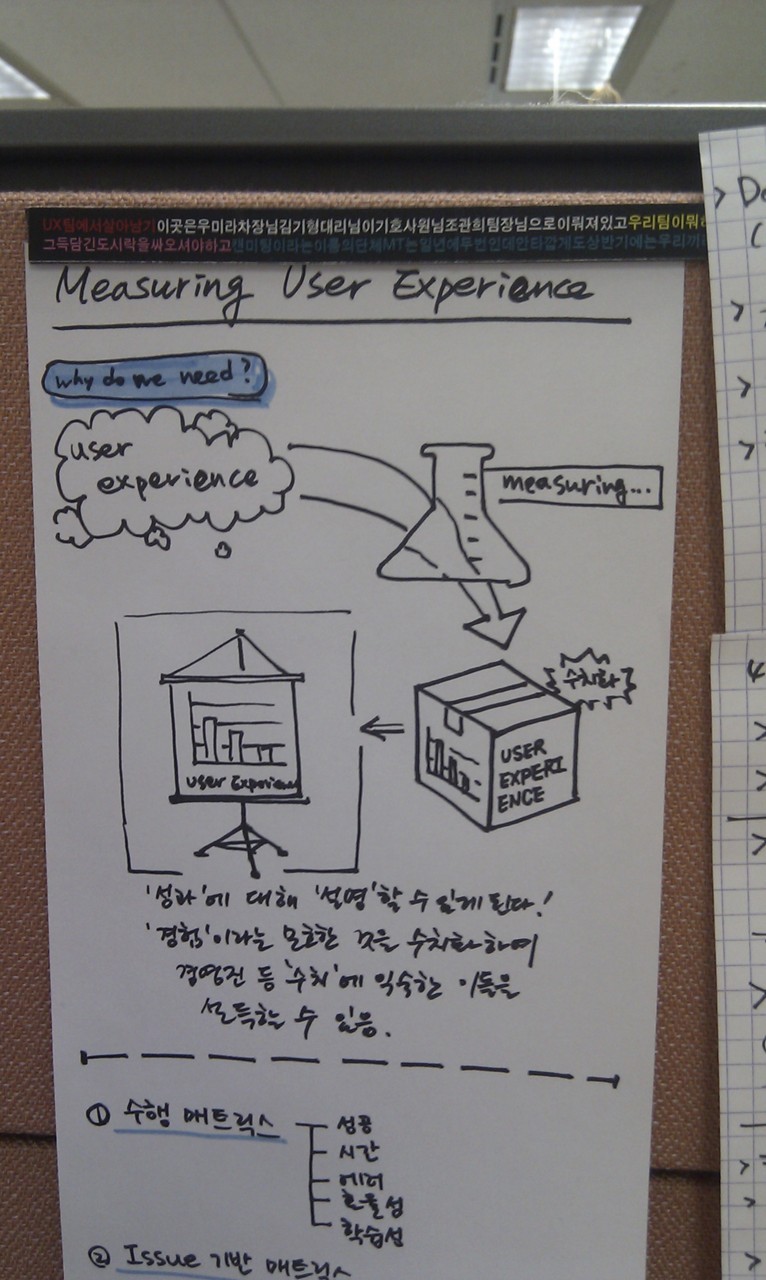 UX팀에서살아남기이곳은우미라차장님김기형대리님이기호사원님조관희팀장님으로이뤄져있고우리팀이뭐
그득담긴도시락을싸오셔야하고캔미팅이라는이름의단체MT는일년에두번인데안타깝게도상반기에는우리끼
Measuring User Experience
why do we need?
user
experience
measuring...
수치화
USER
EXPERI
ENCE
User Experience
'성과'에 대해 '설명'할 수 있게 된다!
'경험'이라는 모호한 것을 수치화하여
경영진 등 '수치'에 익숙한 이들을
설득할 수 있음.
① 수행 매트릭스
성공
시간
에러
효율성
학습성
② Issue 기반 매트릭스
> Do
(
>
>
>
4
>
>
>
>
>
>
>